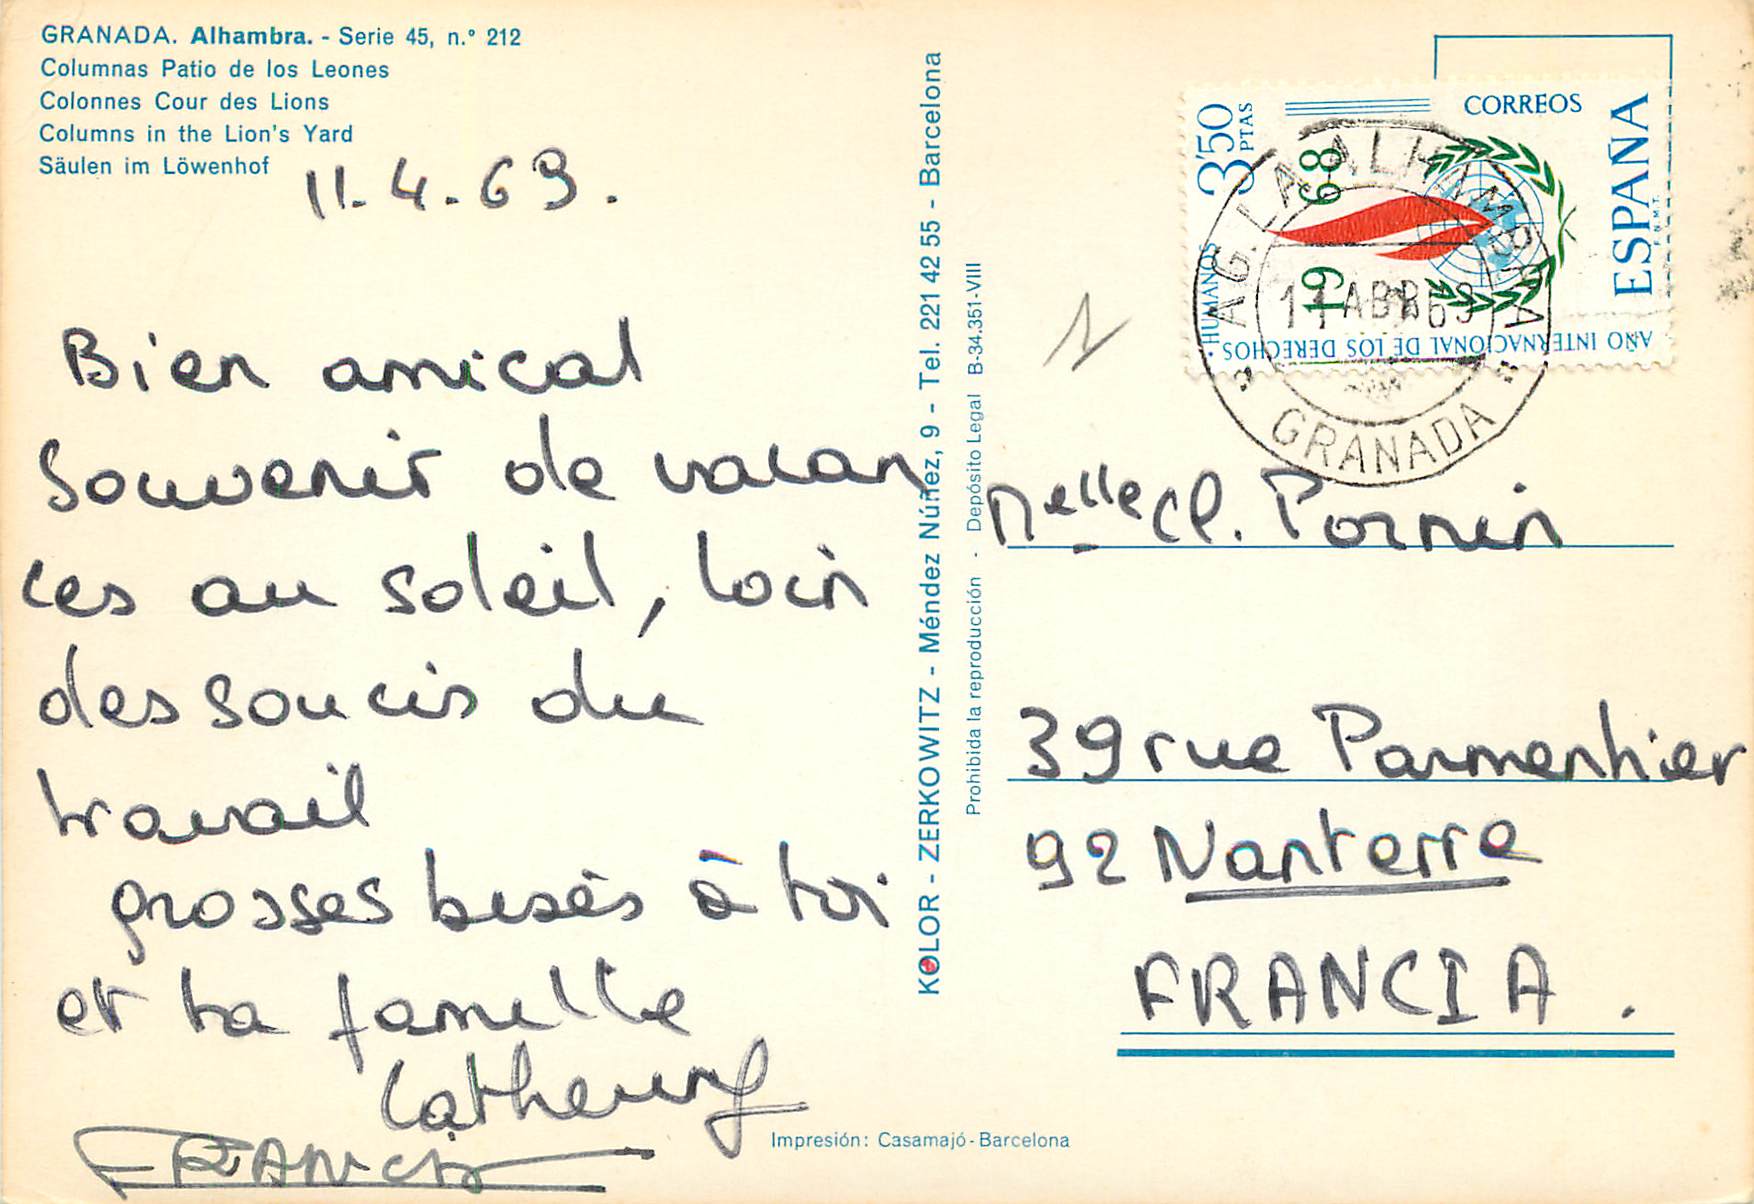 GRANADA. Alhambra. - Serie 45, n.º 212
Columnas Patio de los Leones
Colonnes Cour des Lions
Columns in the Lion's Yard
Säulen im Löwenhof
11.4.69.
Bien amical
souvenir de vacan
ces au soleil, loin
des soucis du
travail
grosses bises à toi
et ta famille
FRANCIS
KOLOR - ZERKOWITZ - Méndez Núñez, 9 - Tel. 221 42 55 - Barcelona
Prohibida la reproducción - Depósito Legal B-34.351-VIII
Impresión: Casamajó-Barcelona
3'50 PTAS
CORREOS
ESPAÑA
F.N.M.T.
1968
AÑO INTERNACIONAL DE LOS DERECHOS HUMANOS
AG. LA ALHAMBRA
11 ABR 69
GRANADA
Melle Cl. Pornin
39 rue Parmentier
92 Nanterre
FRANCIA.